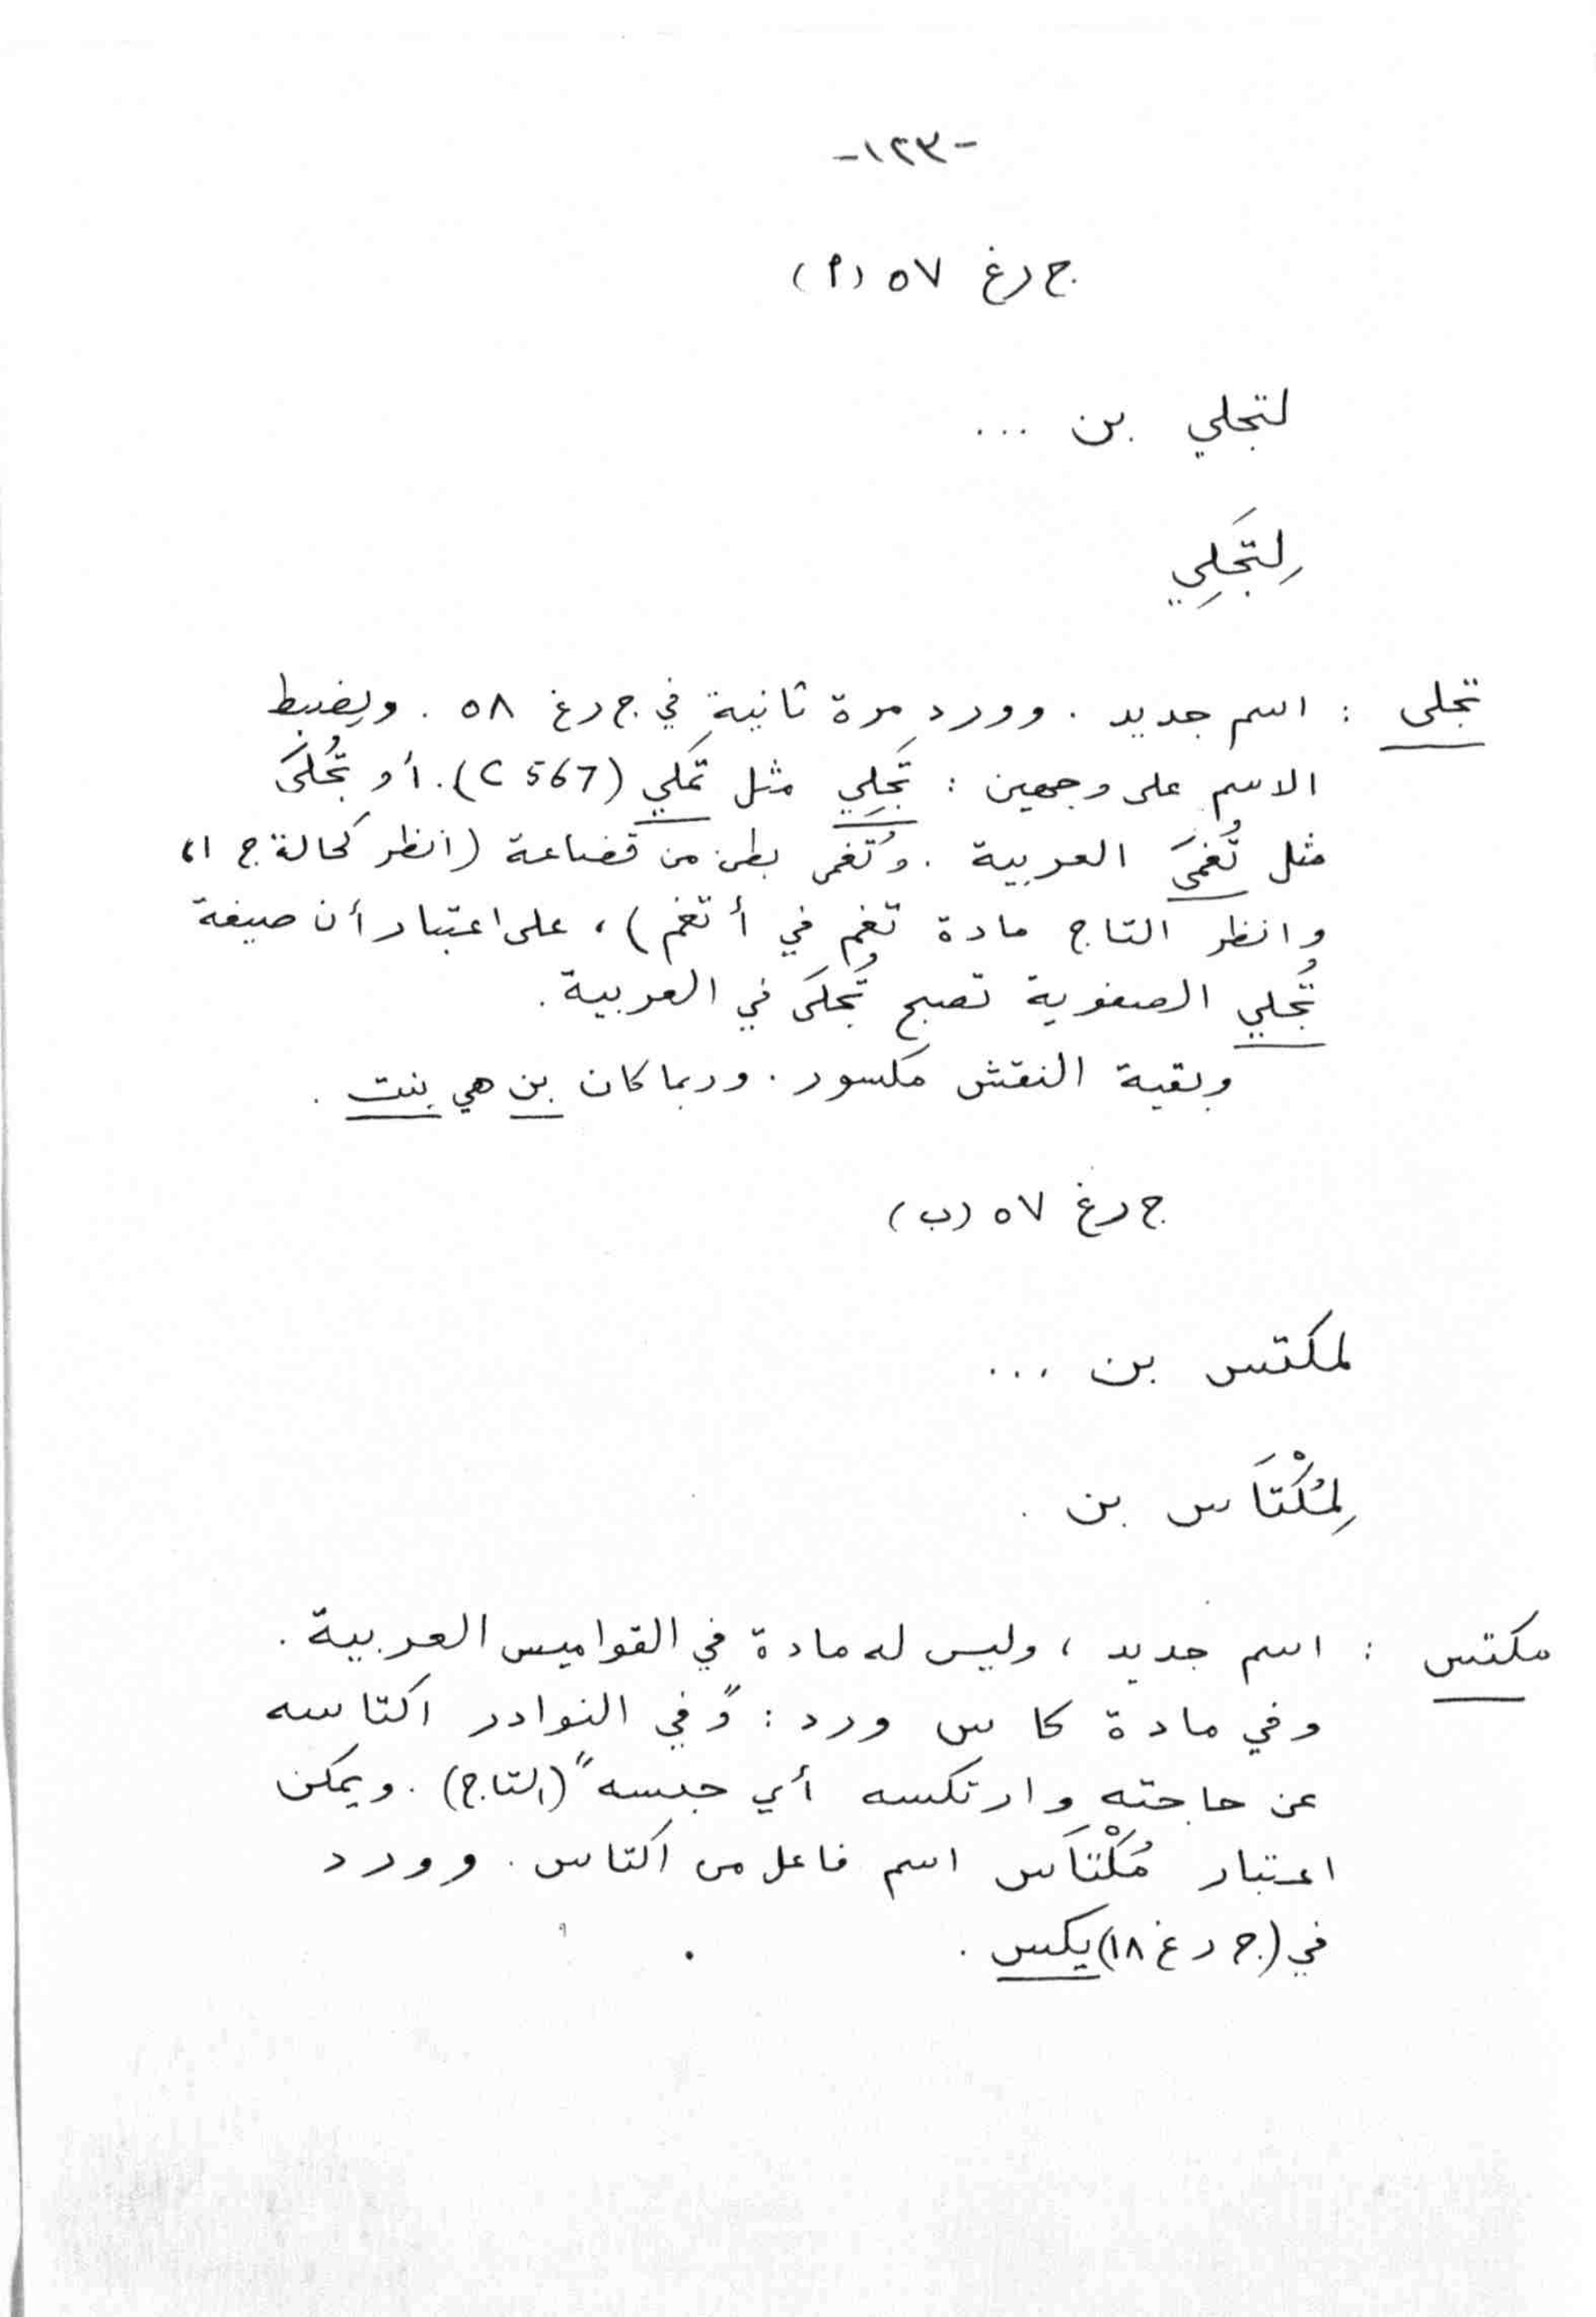 -١٢٣-
ج رغ ٥٧ (أ)
لتجلي بن ...
لِتَجَلِي
تجلى : اسم جديد . وورد مرة ثانية في ج رغ ٥٨ . ويضبط
الاسم على وجهين : تَجَلِي مثل تملي (C 567). أو تُجْلَى
مثل تُغمَى العربية . وتُغمى بطن من قضاعة (انظر كحالة ج ١،
وانظر التاج مادة تغم في أتغم) ، على اعتبار أن صيغة
تُجلي الصفوية تصبح تُجلَى في العربية .
وبقية النقش مكسور . وربما كان بن هي بنت .
ج رغ ٥٧ (ب)
لمكتس بن ...
لِمُكْتَاس بن .
مكتس : اسم جديد ، وليس له مادة في القواميس العربية .
وفي مادة كاس ورد : "وفي النوادر اكتاسه
عن حاجته وارتكسه أي حبسه" (التاج) . ويمكن
اعتبار مُكْتَاس اسم فاعل من اكتاس . وورد
في (ج رغ ١٨) يكس .